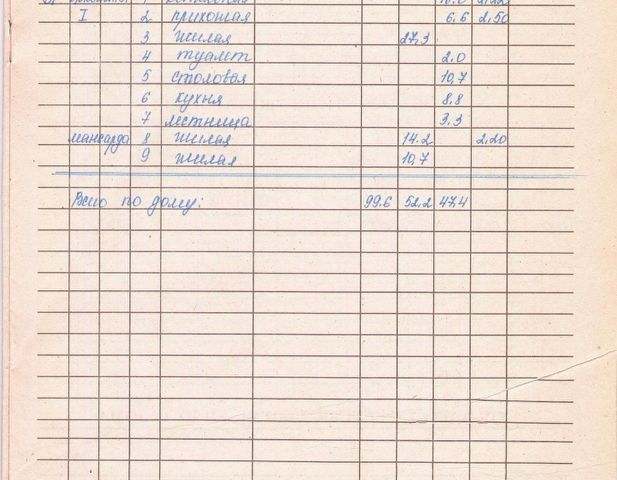 I 2 прихожая 6,6 2,50
3 жилая 27,3
4 туалет 2,0
5 столовая 10,7
6 кухня 8,8
7 лестница 3,3
мансарда 8 жилая 14.2 2,20
9 жилая 10,7
Всего по дому: 99.6 52,2 47,4